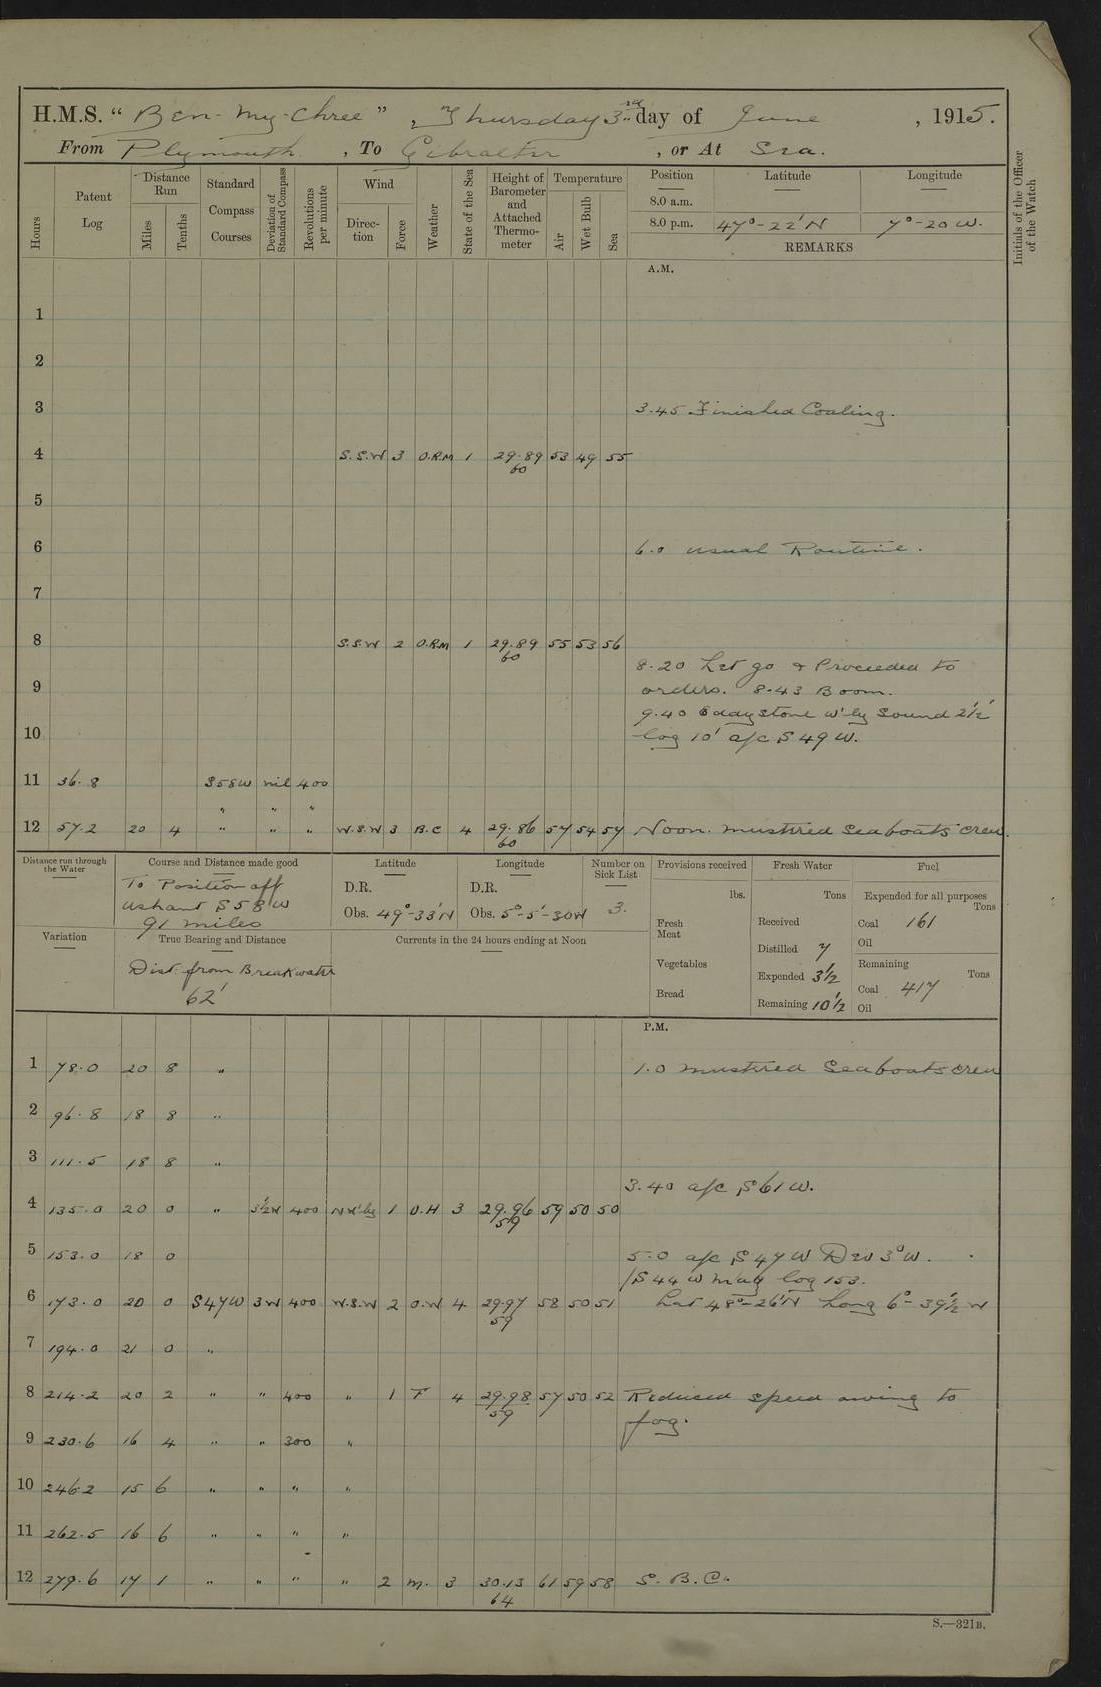 H.M.S. “ Ben-my-Chree ” , Thursday 3rd day of June , 1915.
From Plymouth , To Gibraltar , or At Sea.
Hours
Patent Log
Distance Run
Miles
Tenths
Standard Compass Courses
Deviation of Standard Compass
Revolutions per minute
Wind
Direc-tion
Force
Weather
State of the Sea
Height of Barometer and Attached Thermo-meter
Temperature
Air
Wet Bulb
Sea
Position Latitude Longitude
8.0 a.m.
8.0 p.m. 47°-22'N 7°-20 W.
REMARKS
Initials of the Officer of the Watch
A.M.
1
2
3 3.45 Finished Coaling.
4 S.S.W 3 O.R.M 1 29.89 53 49 55
60
5
6 6.0 usual Routine.
7
8 S.S.W 2 O.R.M 1 29.89 55 53 56
60
8.20 Let go & Proceeded to
9 orders. 8.43 Boom.
9.40 Eddystone w'ly Sound 2½'
10 log 10' a/c S 49 W.
11 36.8 S58W nil 400
" " "
12 57.2 20 4 " " " W.S.W 3 B.C 4 29.86 57 54 57 Noon. mustered Seaboats crew.
60
Distance run through the Water
Course and Distance made good
To Position off
Ushant S 58 W
91 miles
Latitude
D.R.
Obs. 49°-33'N
Longitude
D.R.
Obs. 5°-5'-30W
Number on Sick List
3.
Provisions received
lbs.
Fresh Meat
Vegetables
Bread
Fresh Water
Tons
Received
Distilled 7
Expended 3½
Remaining 10½
Fuel
Expended for all purposes
Tons
Coal 161
Oil
Remaining
Tons
Coal 417
Oil
Variation
True Bearing and Distance
Dist. from Breakwater
62'
Currents in the 24 hours ending at Noon
P.M.
1 78.0 20 8 " 1.0 mustered Seaboats crew
2 96.8 18 8 "
3 111.5 18 8 "
3.40 a/c S 61 W.
4 135.0 20 0 " 3½W 400 NW'ly 1 O.H 3 29.96 59 50 50
59
5 153.0 18 0 5.0 a/c S 47 W Dev 3°W.
/S 44 W mag log 153.
6 173.0 20 0 S47W 3W 400 W.S.W 2 O.W 4 29.97 58 50 51 Lat 48°-26'N Long 6°-39½'W
59
7 194.0 21 0 "
8 214.2 20 2 " " 400 " 1 F 4 29.98 57 50 52 Reduced speed owing to
59 fog.
9 230.6 16 4 " " 300 "
10 246.2 15 6 " " " "
11 262.5 16 6 " " " "
12 279.6 17 1 " " " " 2 m. 3 30.13 61 59 58 S. B. C.
64
S.—321B.